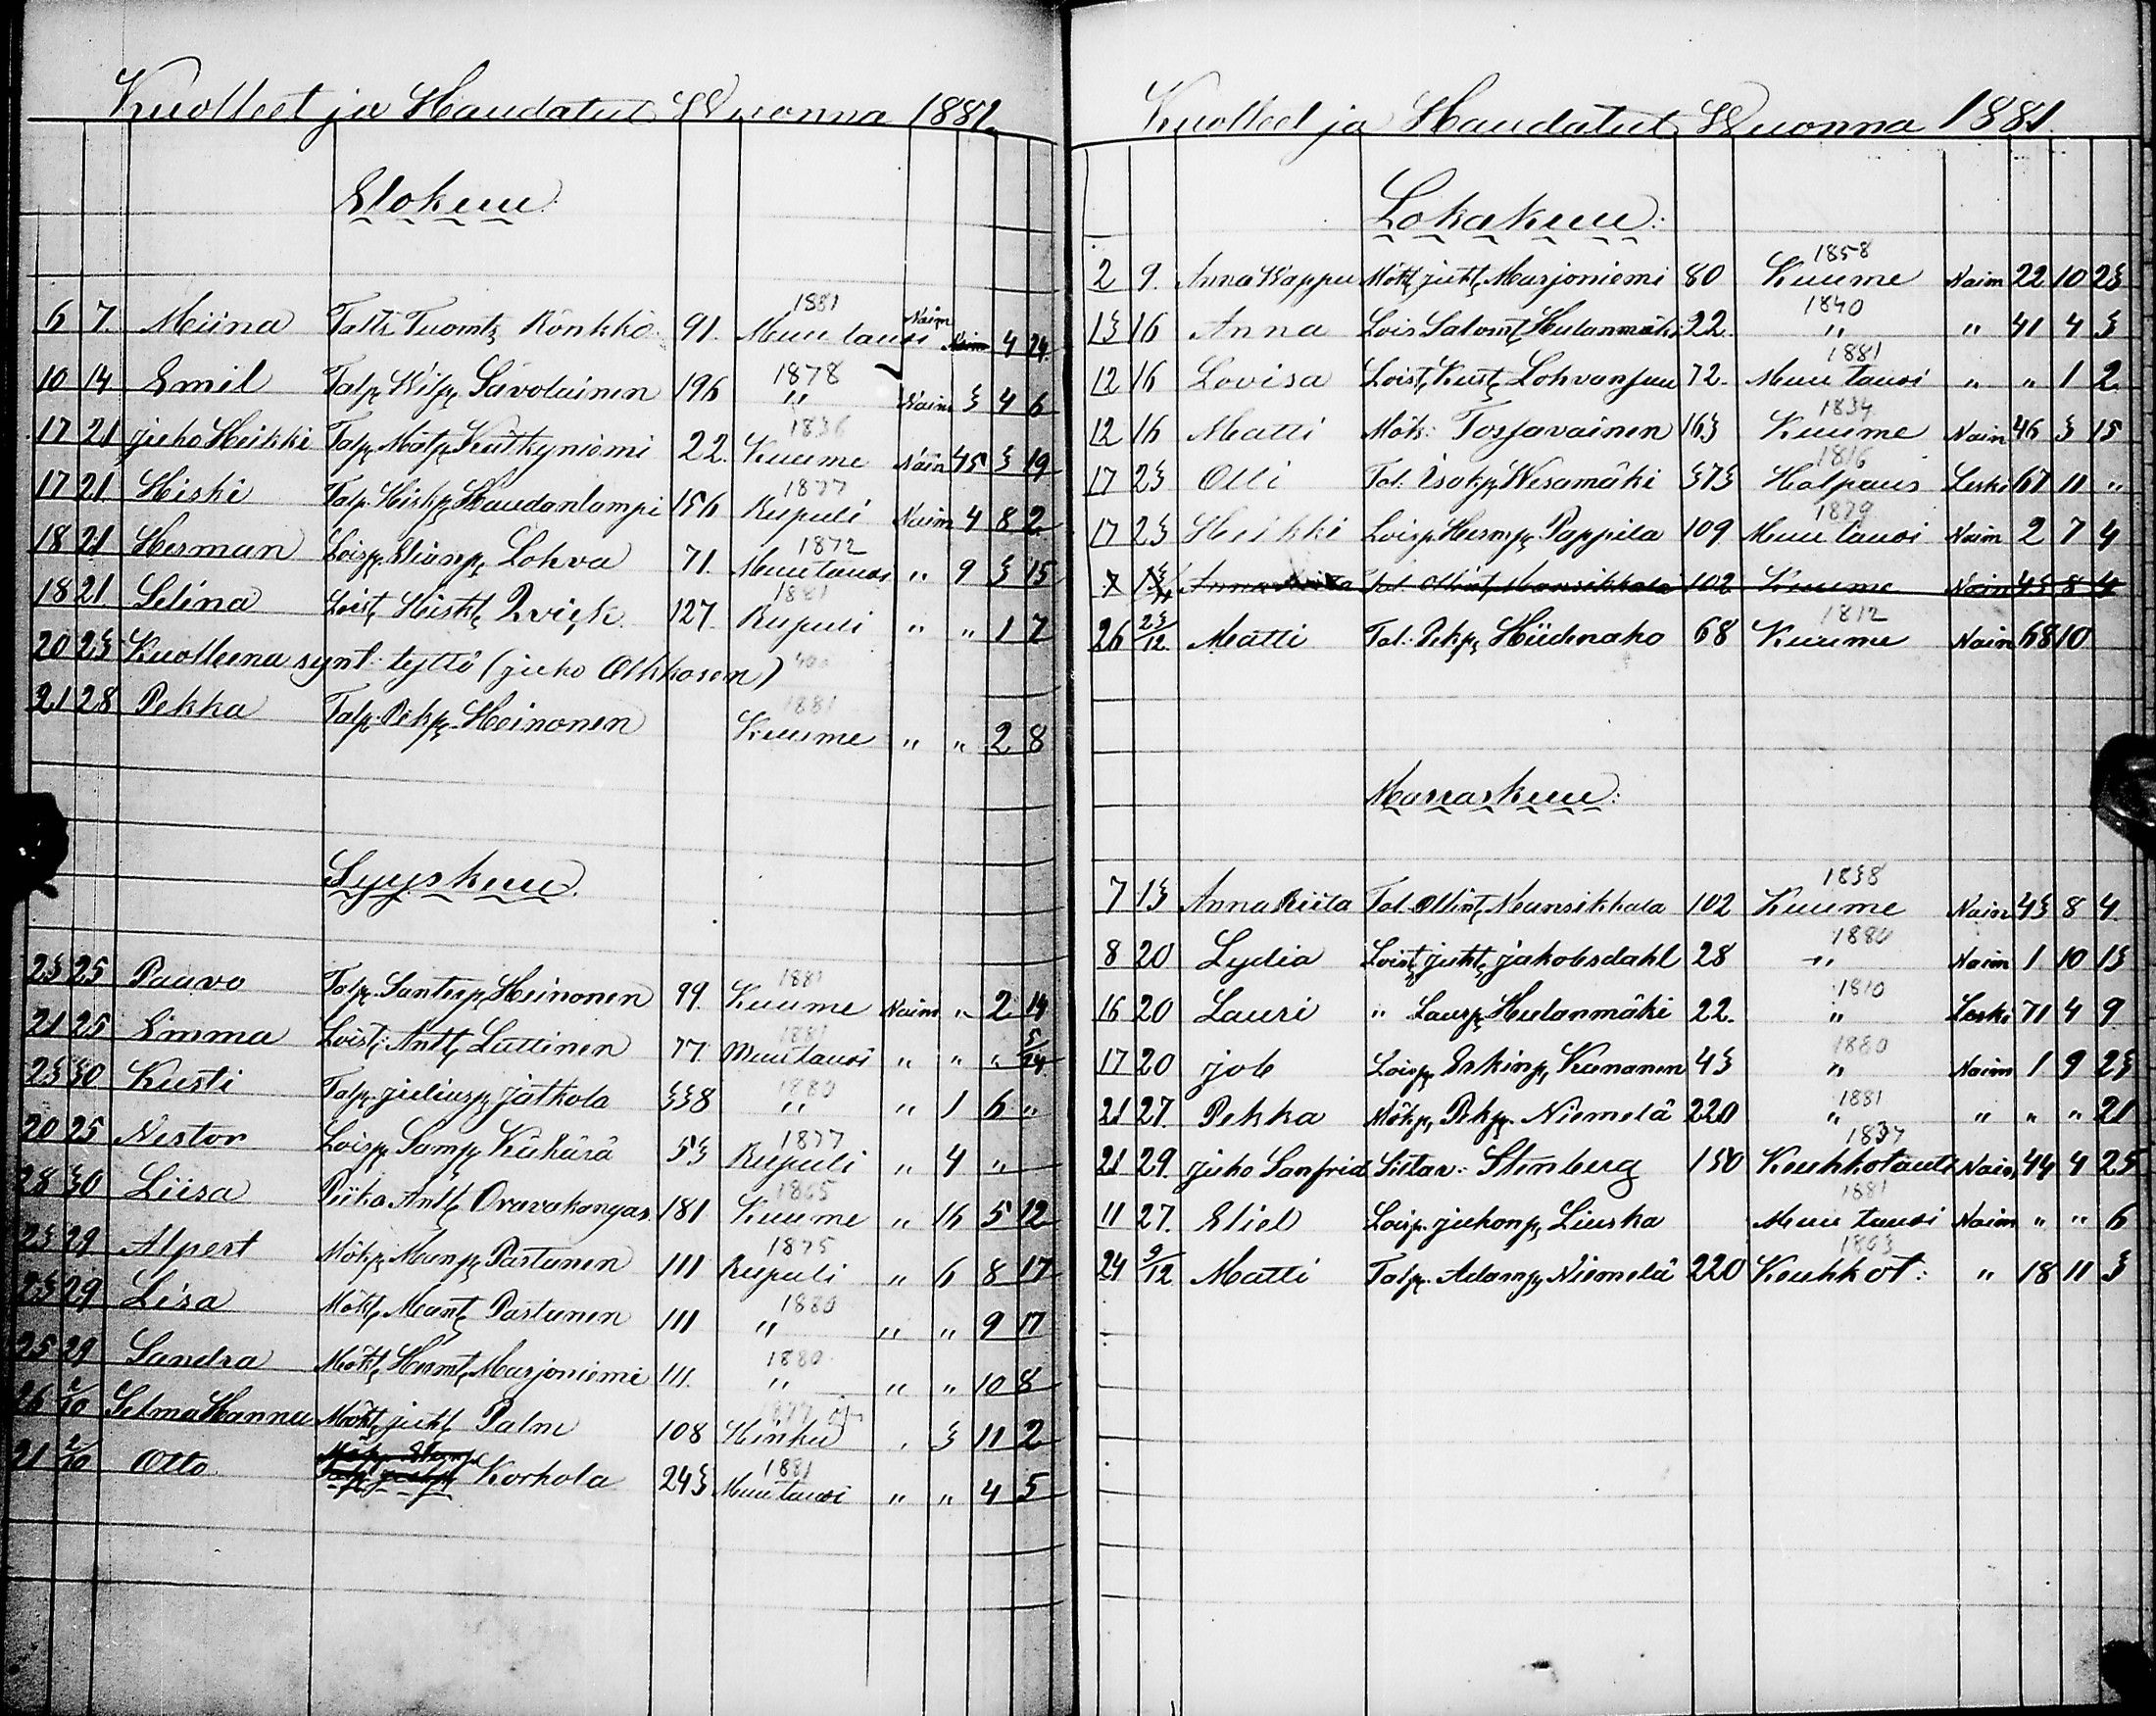 Kuolleet ja Haudatut Wuonna 1881.
Elokuu:
6 7. Miina Taltr Tuomt Rönkkö 91. 1881 Muu tausi Naim Naim 4 24.
10 14 Emil Talp Wilp Savolainen 196 1878 " Naim 3 4 6
17 21 juho Heikki Talp Matp Kätkyniemi 22. 1836 Kuume Naim 45 3 19
17 21 Heiski Talp. Heiskp Haudanlampi 156 1877 Rupuli Naim 4 8 2
18 21 Herman Loisp. Eliamp Lohva 71. 1872 Muu tausi " 9 3 15
18 21. Selina Loist Heiskt Qvick. 127. 1881 Rupuli " " 1 7
20 23 Kuolleena synt: tyttö (juho Olkkosen)
21 28 Pekka Talp. Pekp. Heinonen 1881 Kuume " " 2 8
Syyskuu.
23 25 Paavo Talp. Santerp Heinonen 99. 1881 Kuume Naim " 2 14
21 25 Emma Loist. Antt Luttinen 77. 1881 Muu tausi " " " 5/24
23 30 Kusti Talp. juliusp jatkola 338 1880 " " 1 6 "
20 25 Nestor Loisp Samp Kähärä 53 1877 Rupuli " 4 "
28 30 Liisa Piika Antt Oravakangas. 181 1865 Kuume " 16 5 12
23 29 Alpert Mökp Manp Partunen 111 1875 Rupuli " 6 8 17
23 29 Lisa Mökt Mant Partunen 111 1880 " " " 9 17
25 29 Sandra Mökt Hermt Marjoniemi 111. 1880 " " " 10 8
26 2/10 Selma Hannu Mökt juht Palm 108 1877 Hinku " 3 11 2
21 2/10 Otto Korhola 243 1881 Muu tausi " " 4 5
Kuolleet ja Haudatut Wuonna 1881.
Lokakuu:
2 9. Anna Wappu Mökt juht Marjoniemi 80 1858 Kuume Naim 22 10 23
13 16 Anna Lois Salomt Hulanmäki 22. 1840 " " 41 4 3
12 16 Lovisa Loist Kust Lohvanjuu 72. 1881 Muu tausi " " 1 2
12 16 Matti Mök: Tossavainen 163 1834 Kuume Naim 46 3 15
17 23 Olli Tal: Isakp Wesamäki 373 1816 Halpaus Leski 67 11 "
17 23 Heikki Loisp. Hermp Pappila 109 1879 Muu tausi Naim 2 7 4
7 13/11 Anna Riita Tal. Ollint Mansikkala 102 Kuume Naim 43 8 4
26 23/12. Matti Tal: Pekp Hiidenaho 68 1812 Kuume Naim 68 10
Marraskuu:
7 13 Anna Riita Tal. Ollint Mansikkala 102 1838 Kuume Naim 43 8 4.
8 20 Lydia Loist juht jakobsdahl 28 1880 " Naim 1 10 13
16 20 Lauri " Laurp Hulanmäki 22. 1810 " Leski 71 4 9
17 20 job Loisp Erkinp Kunanen 43 1880 " Naim 1 9 23
21 27. Pekka Mökp, Pekp. Niemelä 220 1881 " " " " 21
21 29. juho Sanfrid Siltav: Stenberg 130 1837 Keuhkotauti Naim 44 4 25
11 27. Eliel Loisp. juhonp Liuska 1881 Muu tausi Naim " " 6
24 9/12 Matti Talp. Adamp Niemelä 220 1863 Keuhkot: " 18 11 3